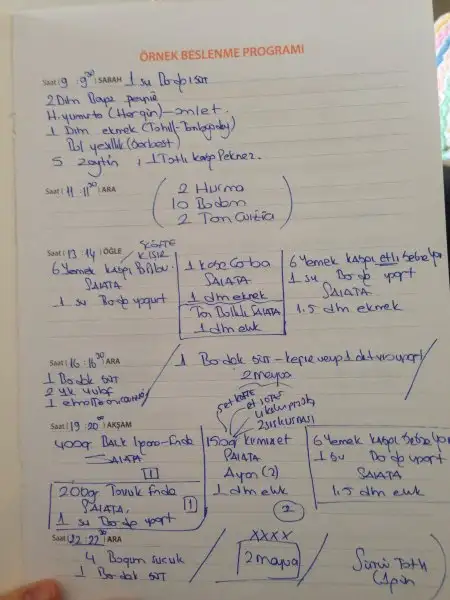 ÖRNEK BESLENME PROGRAMI
Saat | 9 : 9³⁰ | SABAH 1 su Bardağı süt
2 Dilim Beyaz peynir
H. yumurta (Hergün) - omlet.
1 Dilim ekmek (Tahıllı-
Bol yeşillik (Serbest)
5 zeytin, 1 Tatlı kaşığı Pekmez.
Saat | 11 : 11³⁰ | ARA
2 Hurma
10 Badem
2 Tam Ceviz
Saat | 13 : 14 | ÖĞLE
KISIR
6 Yemek kaşığı
SALATA
1 su Bardağı yoğurt
1 kase Çorba
SALATA
1 dlm ekmek
Ton Balıklı SALATA
1 dlm ekmek
6 Yemek kaşığı etli Sebze
1 su Bardağı yoğurt
SALATA
1.5 dlm ekmek
Saat | 16 : 16³⁰ | ARA
1 Bardak süt
2 yk yulaf
1 Bardak süt - kefir veya 1 aktivia yoğurt
2 meyve
Saat | 19 : 20⁰⁰ | AKŞAM
400gr Balık Izgara - Fırında
SALATA
1
200gr Tavuk Fırında
SALATA,
1 su Bardağı yoğurt
1
150gr kırmızı et
SALATA
Ayran (2)
1 dlm ekmek
2
6 Yemek kaşığı Sebze
1 su Bardağı yoğurt
SALATA
1.5 dlm ekmek
Saat | 22 : 22³⁰ | ARA
4 Boğum Sucuk
1 Bardak süt
XXXX
2 meyve
Sütlü Tatlı